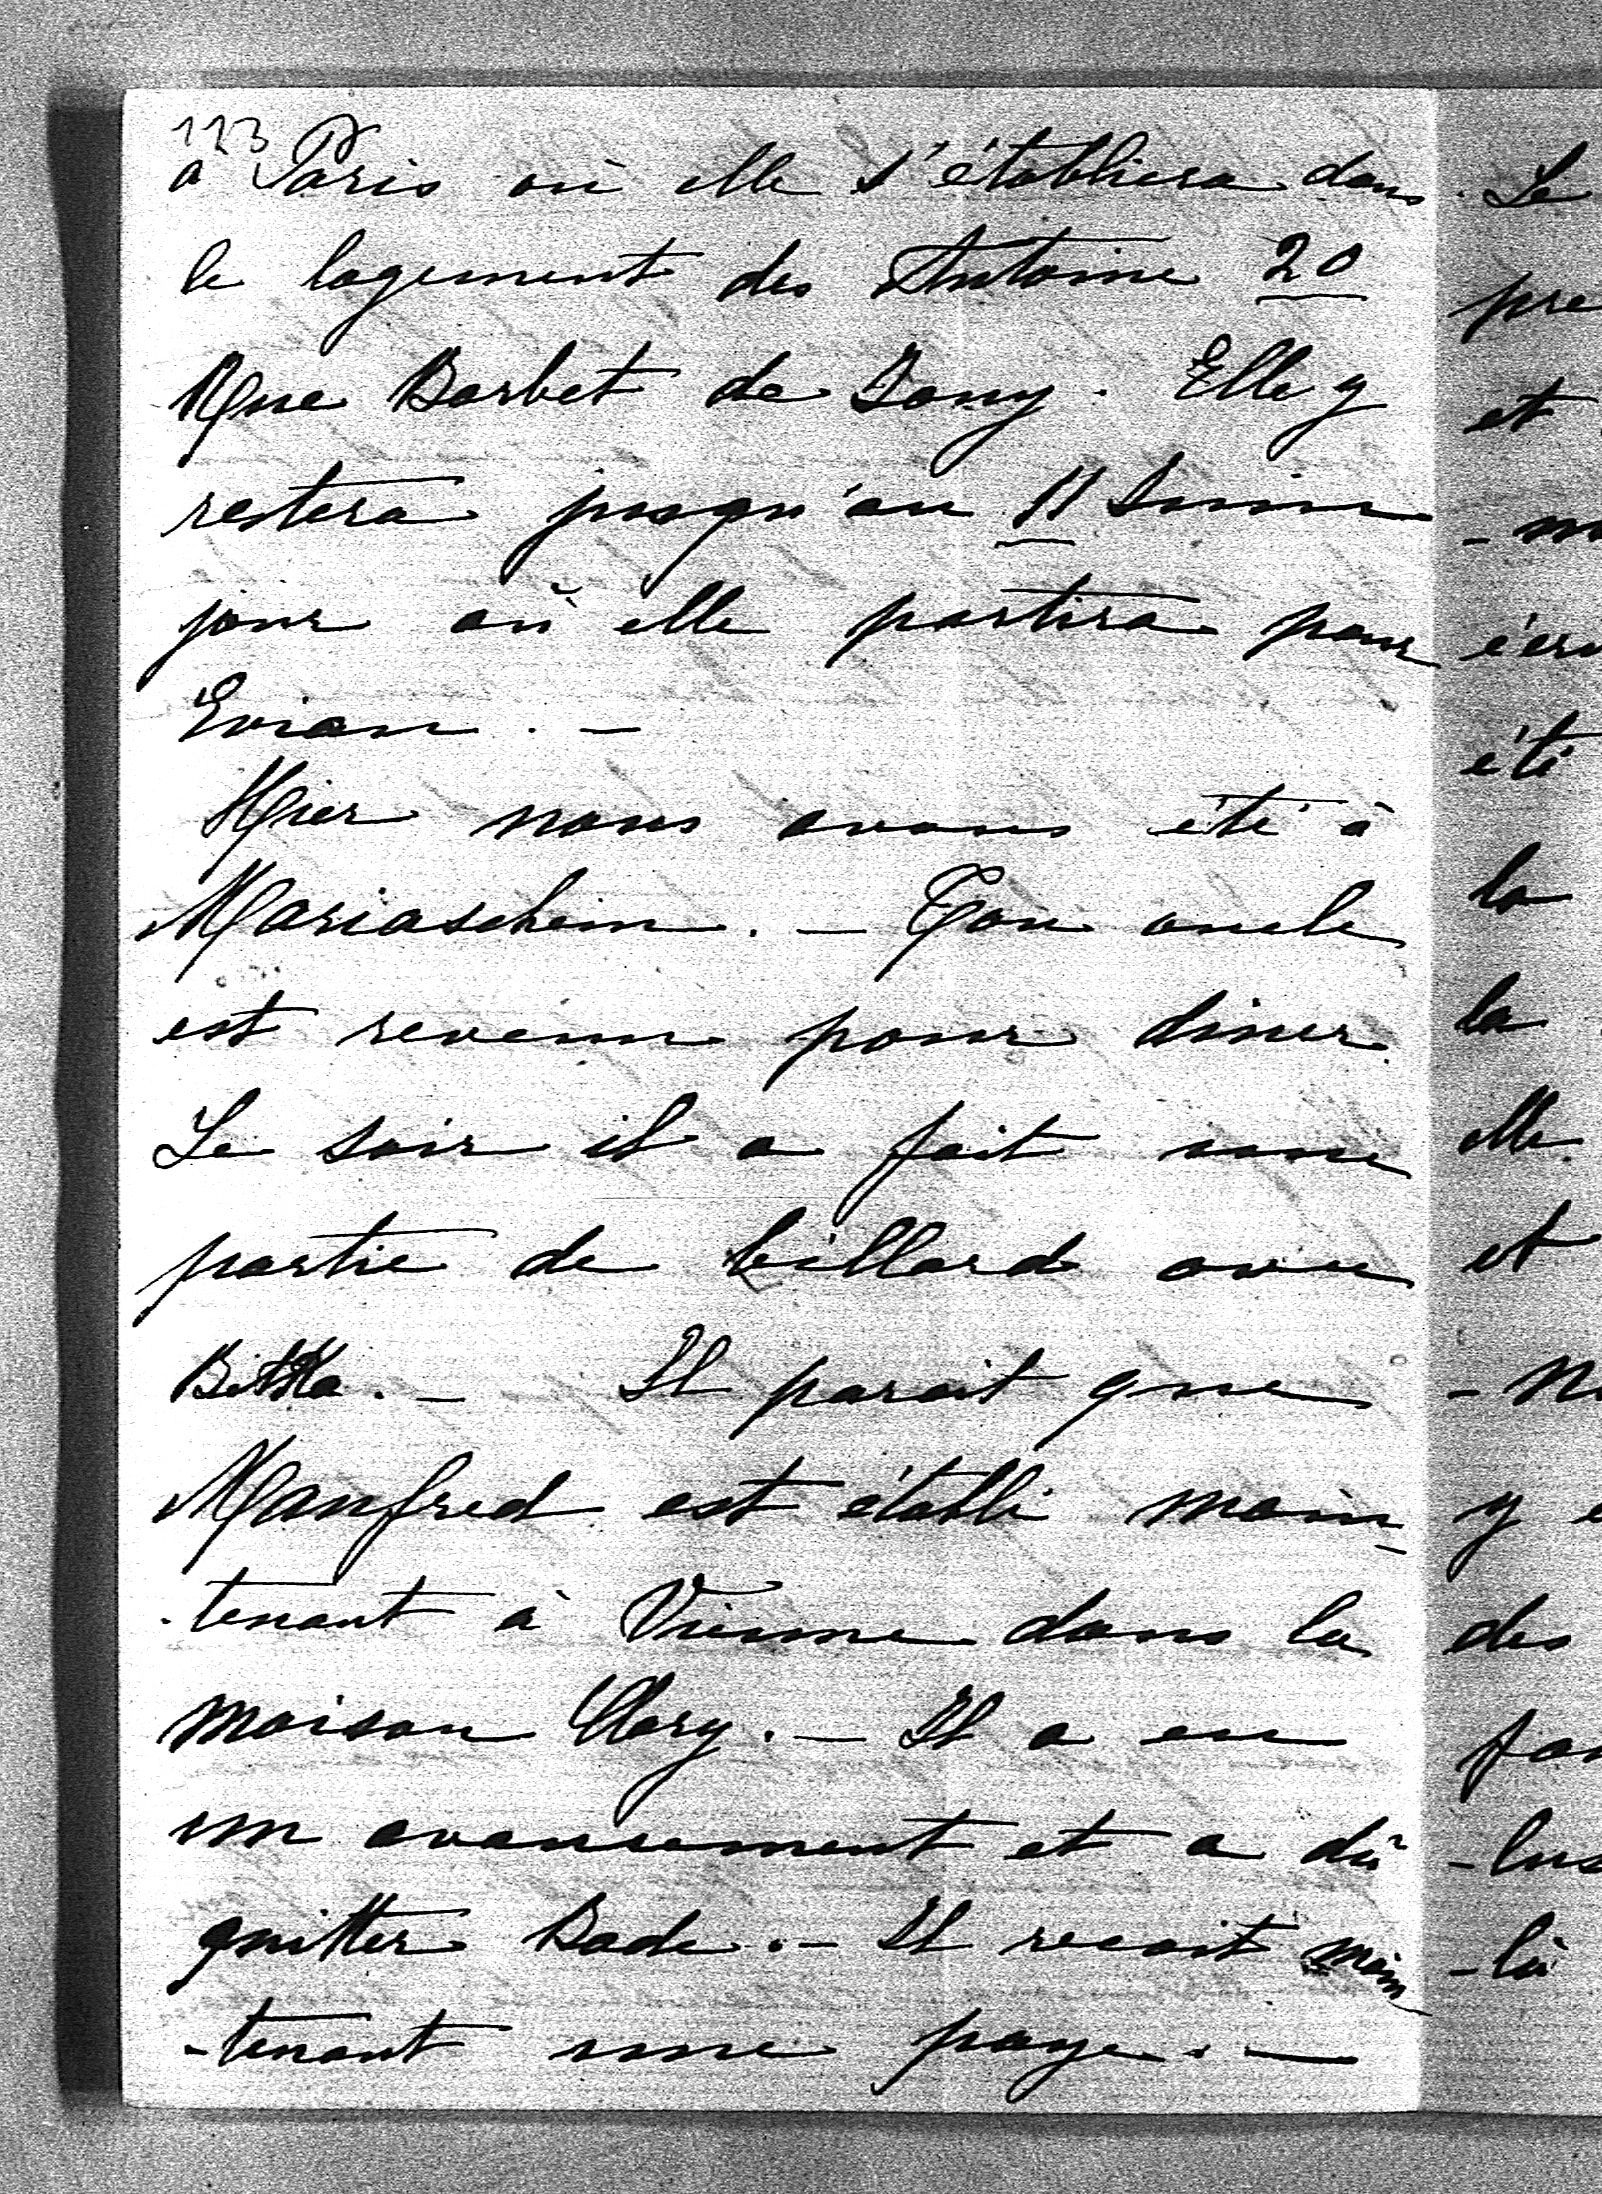 113
a Paris où elle s'établiera dans
le logement des Antoine 20
Rue Barbet de Jouy. Elle y
restera jusqu'au 11 Juin
jour où elle partira pour
Evian. –
Hier nous avons été à
Mariaschein. – Ton oncle
est revenu pour diner.
Le soir il a fait une
partie de billard avec
Bettka. – Il parait que
Manfred est établi main-
-tenant à Vienne dans la
maison Clary. – Il a eu
un avancement et a dû
quitter Bade. – Il recoit main-
-tenant une paye. –
Le
pre
et
- m
écri
été
la
la
elle
et
- n
y
des
- lus
- là